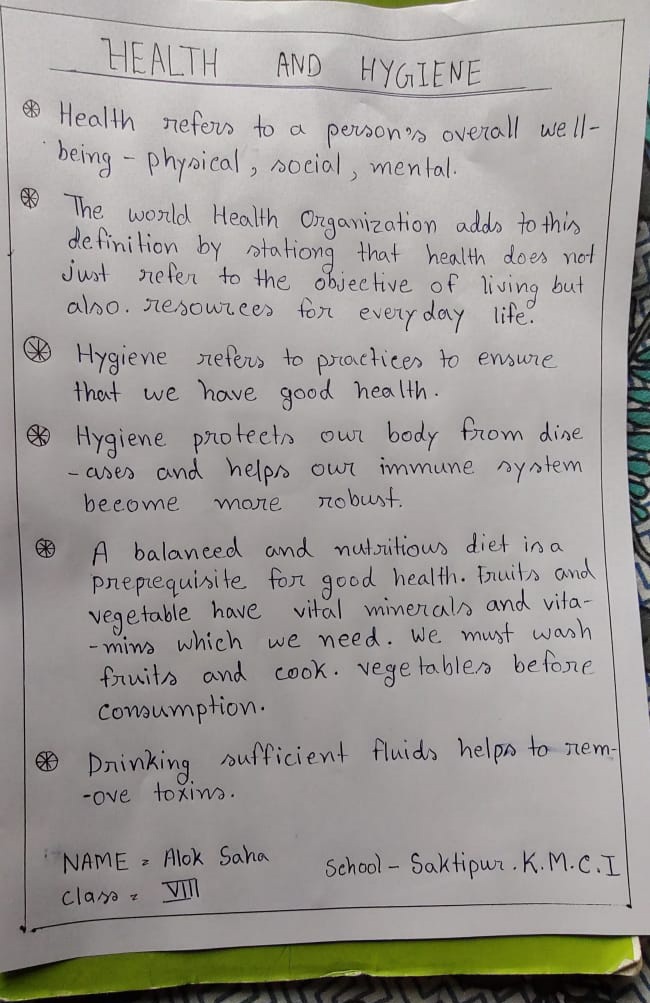 HEALTH AND HYGIENE
Health refers to a person's overall well-
being - physical, social, mental.
The world Health Organization adds to this
definition by stationg that health does not
just refer to the objective of living but
also. resources for everyday life.
Hygiene refers to practices to ensure
that we have good health.
Hygiene protects our body from dise
-ases and helps our immune system
become more robust.
A balanced and nutritious diet is a
preprequisite for good health. Fruits and
vegetable have vital minerals and vita-
-mins which we need. We must wash
fruits and cook. vegetables before
consumption.
Drinking sufficient fluids helps to rem-
-ove toxins.
NAME = Alok Saha School - Saktipur. K.M.C.I
Class = VIII